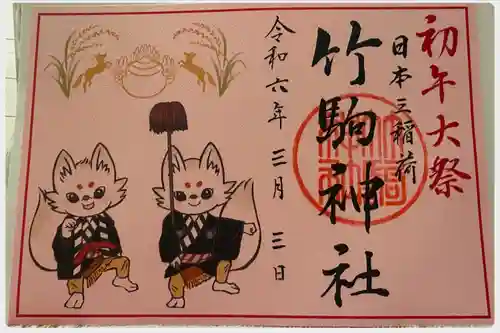 初午大祭
日本三稲荷
竹駒神社
令和六年三月三日